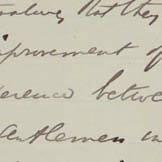 that they
improvement of
erence betwee
Gentlemen in